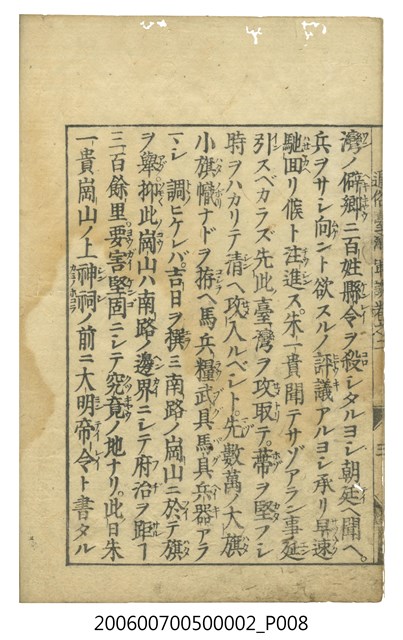 灣ノ僻鄉ニ百姓縣令ヲ殺シタルヨシ朝廷ヘ聞ヘ。
兵ヲサシ向ント欲スルノ評議アルヨシ承リ早速
馳回リ候ト注進ス。朱一貴聞テサゾアラン事延
引スベカラズ先此臺灣ヲ攻取テ。蒂ヲ堅フシ
時ヲハカリテ清ヘ攻入ルベシト。先數萬ノ大旗
小旗幟ナドヲ拵ヘ馬兵糧武具馬具兵器アラ
調ヒケレバ。吉日ヲ撰ミ南路ノ崗山ニ於テ旗
ヲ擧抑此崗山ハ南路ノ邊界ニシテ府治ヲ距ー
三百餘里。要害堅固ニシテ究竟ノ地ナリ。此日朱
一貴崗山ノ上神祠ノ前ニ大明帝令ト書タル
通俗臺灣軍談卷之二
200600700500002_P008